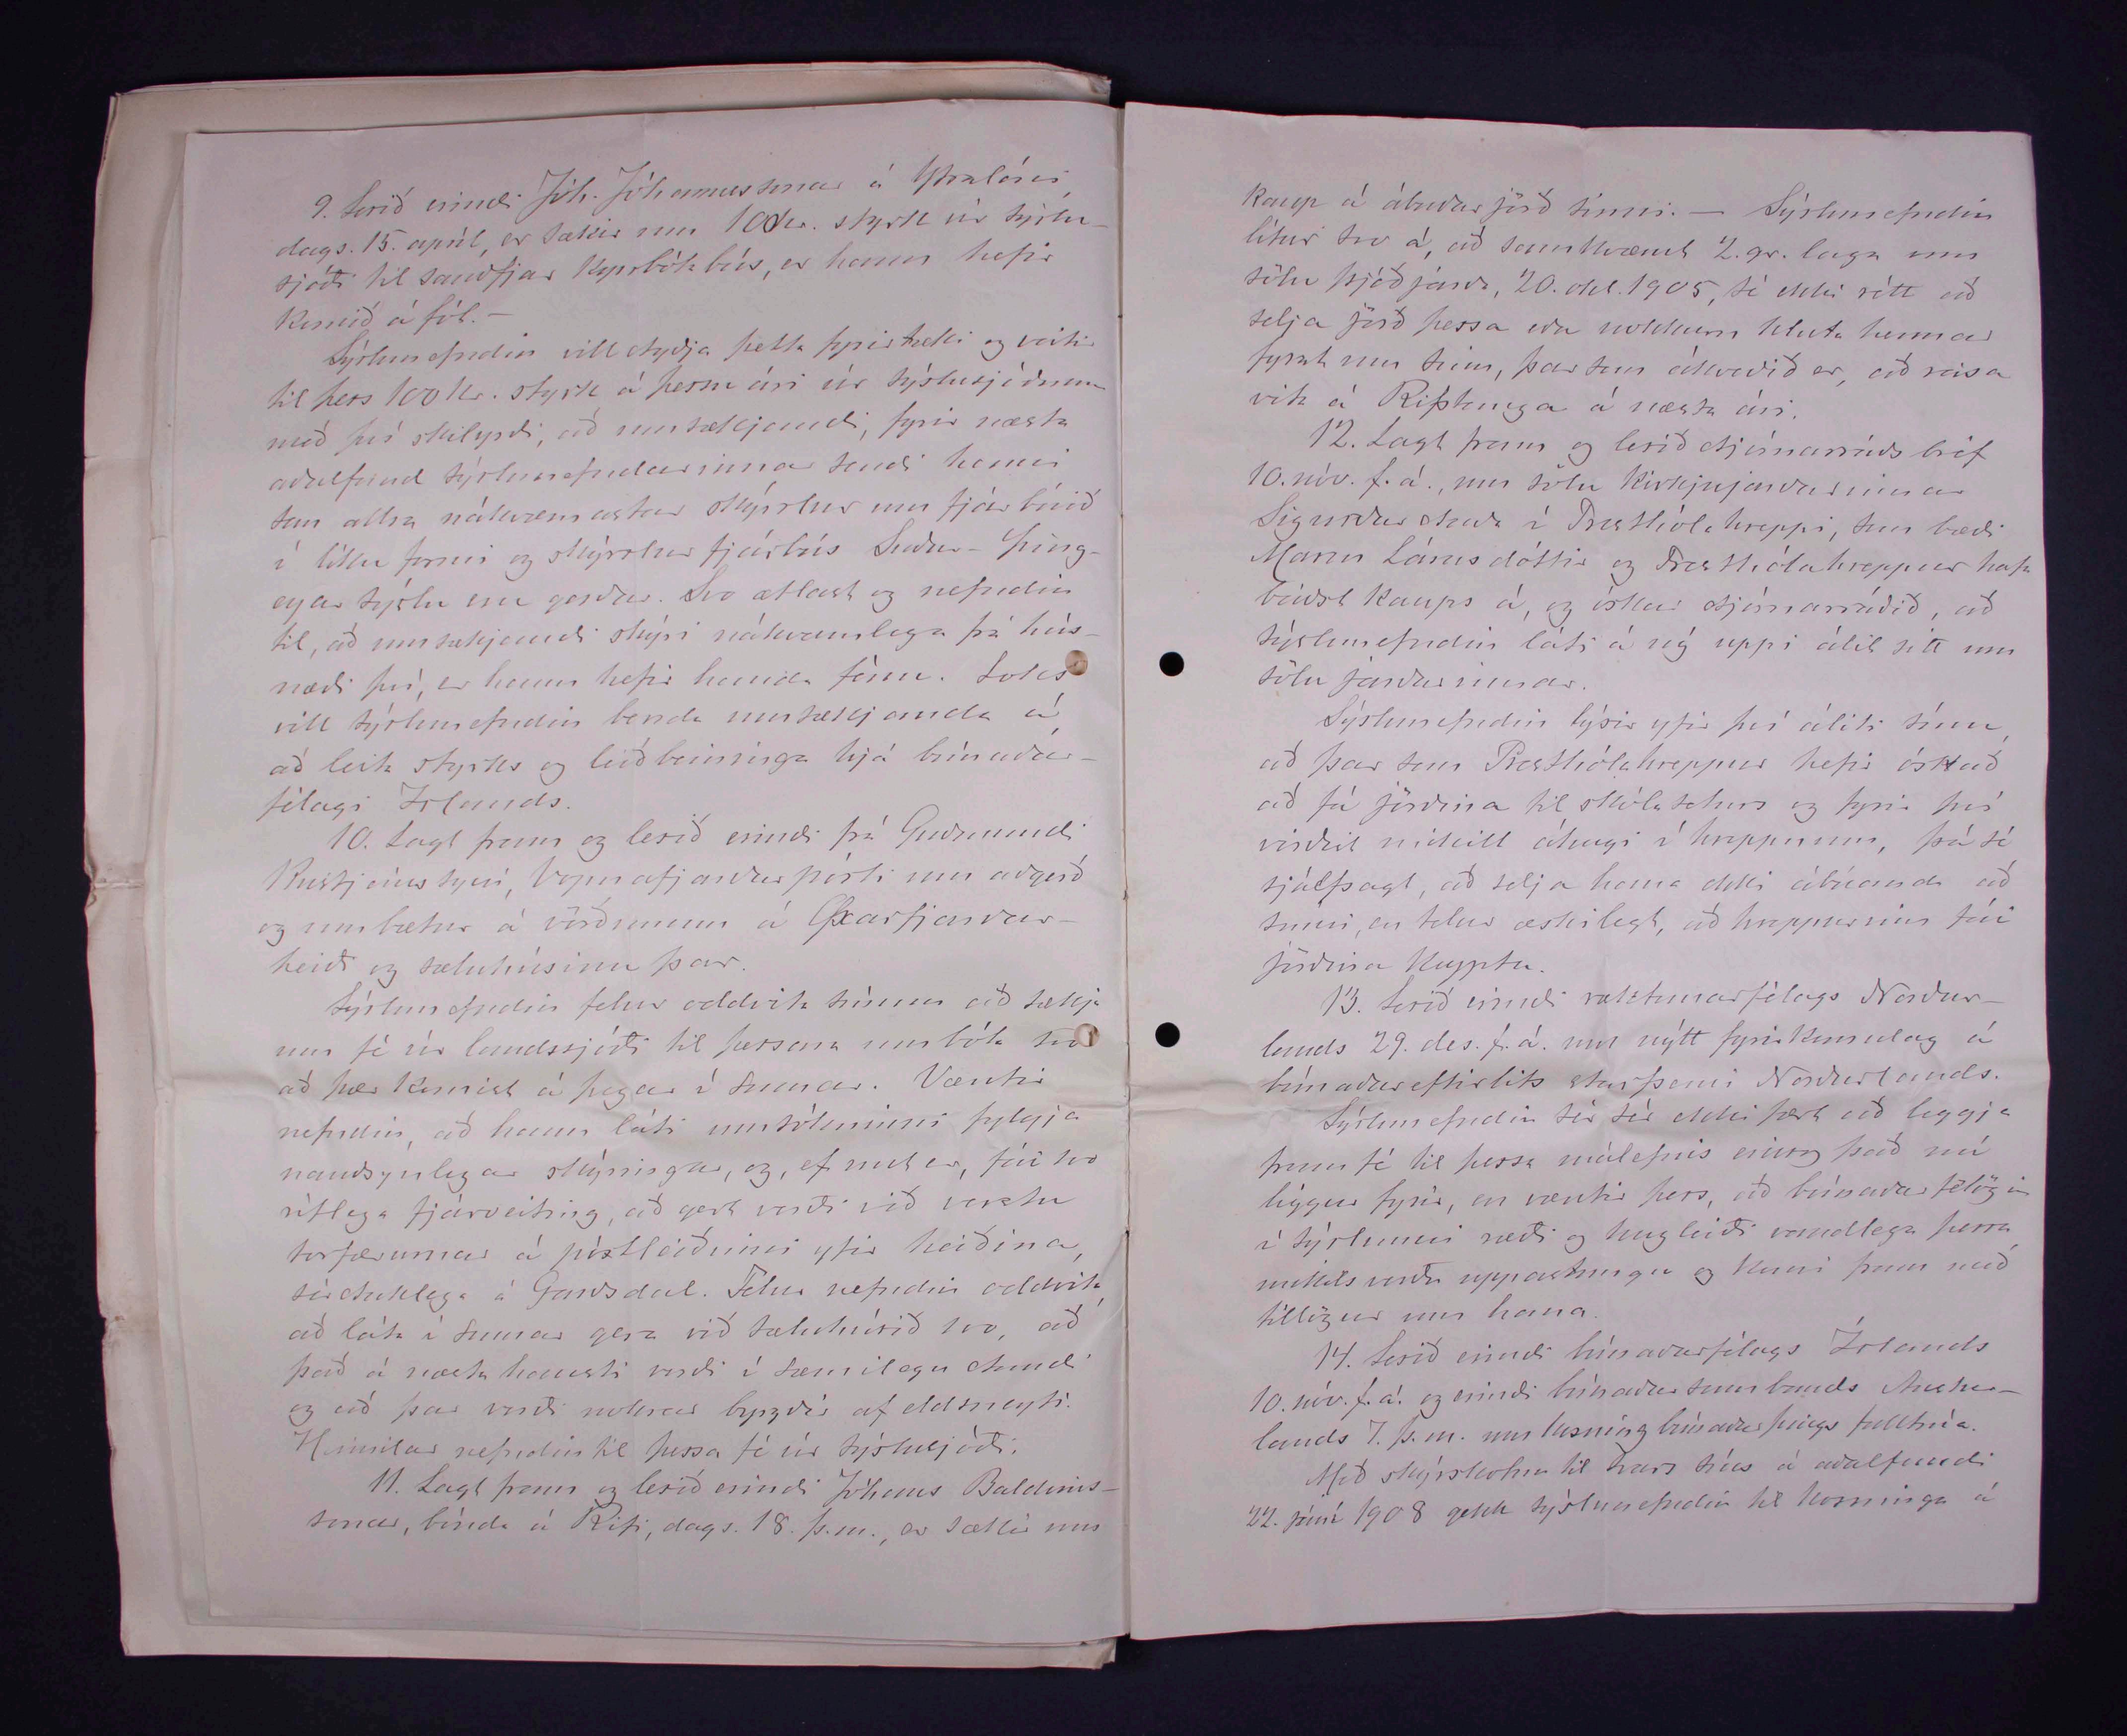 9. Lesið erindi Jóh. Jóhannessonar á Ytralóni,
dags. 15. apríl, er sækir um 100kr. styrk úr sýslu-
sjóði til sauðfjár kynbótabús, er hann hefir
komið á fót. —
Sýslunefndin vill styðja þetta fyrirtæki og veitir
til þess 100 kr. styrk á þessu ári úr sýslusjóðnum
með því skilyrði, að umsækjandi, fyrir næsta
aðalfund sýslunefndarinnar sendi henni
sem allra nákvæmastar skýrslur um fjárbúið
í líku formi og skýrslur fjárbús Suður-Þing-
eyjar sýslu eru gerðar. Svo ætlast og nefndin
til, að umsækjandi skýri nákvæmlega frá hús-
næði því, er hann hefir handa fénu. Loks
vill sýslunefndin benda umsækjanda á
að leita styrks og leiðbeininga hjá búnaðar-
félagi Íslands.
10. Lagt fram og lesið erindi frá Guðmundi
Kristjánssyni, Vopnafjarðarpósti um aðgerð
og umbætur á vörðunum á Öxarfjarðar-
heiði og sæluhúsinu þar.
Sýslunefndin felur oddvita sínum að sækja
um fé úr landssjóði til þessara umbóta svo
að þær komist á þegar í sumar. Væntir
nefndin, að hann láti umsókninni fylgja
nauðsynlegar skýringar, og, ef unt er, fái svo
ríflega fjárveiting, að gert verði við verstu
torfærurnar á póstleiðinni yfir heiðina,
sérstaklega á Garðsdal. Felur nefndin oddvita,
að láta í sumar gera við sæluhúsið svo, að
það á næsta hausti verði í sæmilegu standi
og að þar verði nokrar byrgðir af eldsneyti.
Heimilar nefndin til þessa fé úr sýslusjóði.
11. Lagt fram og lesið erindi Jóhanns Baldvins-
sonar, bónda á Rifi, dags. 18. þ.m., er sækir um
kaup á ábúðarjörð sinni. — Sýslunefndin
lítur svo á, að samkvæmt 2. gr. laga um
sölu þjóðjarða, 20. okt. 1905, sé ekki rétt að
selja jörð þessa eða nokkurn hluta hennar
fyrst um sinn, þar sem ákveðið er, að reisa
vita á Rifstanga á næsta ári.
12. Lagt fram og lesið stjórnarráðs bréf
10. nóv. f. á., um sölu kirkjujarðarinnar
Sigurðarstaða í Presthólahreppi, sem bæði
Maren Lárusdóttir og Presthólahreppur hafa
beiðst kaups á, og óskar stjórnarráðið, að
sýslunefndin láti á ný uppi álit sitt um
sölu jarðarinnar.
Sýslunefndin lýsir yfir því áliti sínu,
að þar sem Presthólahreppur hefir óskað
að fá jörðina til skólaseturs og fyrir því
virðist mikill áhugi í hreppnum, þá sé
sjálfsagt, að selja hana ekki ábúanda að
sinni, en telur æskilegt, að hreppurinn fái
jörðina keypta.
13. Lesið erindi ræktunarfélags Norður-
lands 29. des. f. á. um nýtt fyrirkomulag á
búnaðareftirlits starfsemi Norðurlands.
Sýslunefndin sér sér ekki fært að leggja
fram fé til þessa málefnis eins og það nú
liggur fyrir, en væntir þess, að búnaðarfélögin
í sýslunni ræði og hugleiði vandlega þessa
mikilsverðu uppástungu og komi fram með
tillögur um hana.
14. Lesið erindi búnaðarfélags Íslands
10. nóv. f. á. og erindi búnaðarsambands Austur-
lands 7. þ. m. um kosning búnaðarþings fulltrúa.
Með skýrskotun til svars síns á aðalfundi
22. júní 1908 gekk sýslunefndin til kosninga á